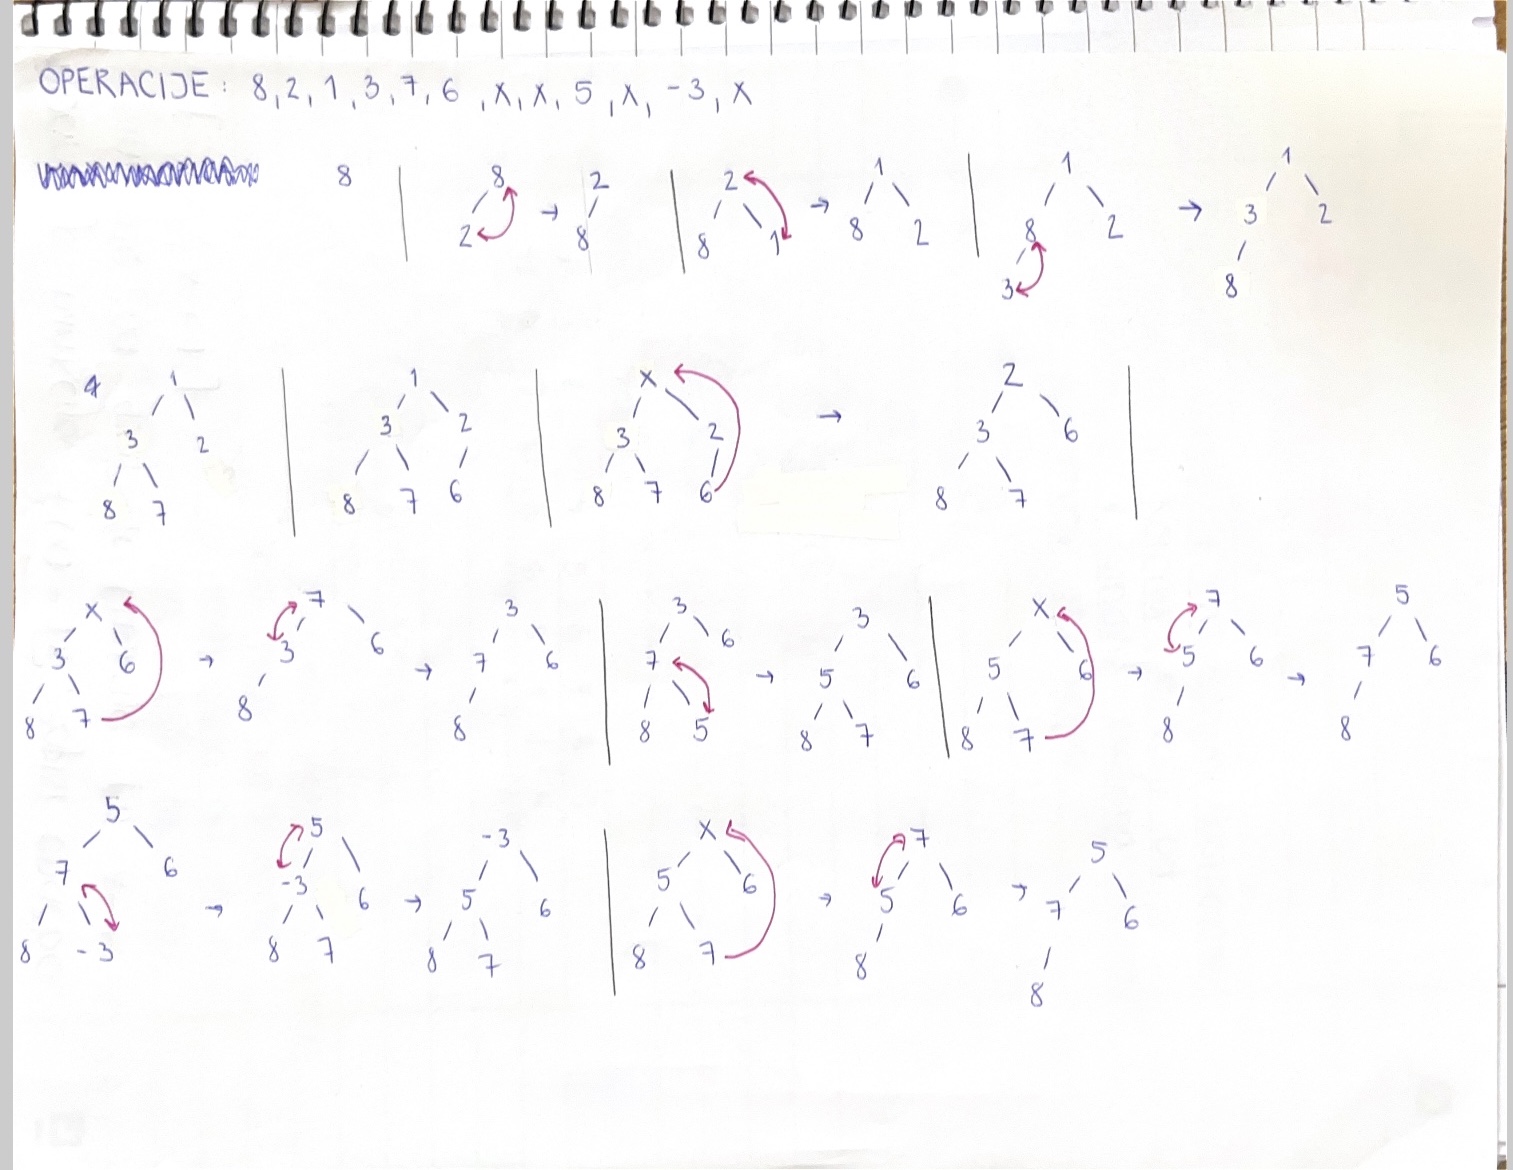 OPERACIJE: 8, 2, 1, 3, 7, 6, X, X, 5, X, -3, X
8 | 8 2 → 2 8 | 2 8 1 → 1 8 2 | 1 8 2 3 → 1 3 2 8
1 3 2 8 7 | 1 3 2 8 7 6 | X 3 2 8 7 6 → 2 3 6 8 7 |
X 3 6 8 7 → 7 3 6 8 → 3 7 6 8 | 3 7 6 8 5 → 3 5 6 8 7 | X 5 6 8 7 → 7 5 6 8 → 5 7 6 8
5 7 6 8 -3 → 5 -3 6 8 7 → -3 5 6 8 7 | X 5 6 8 7 → 7 5 6 8 → 5 7 6 8